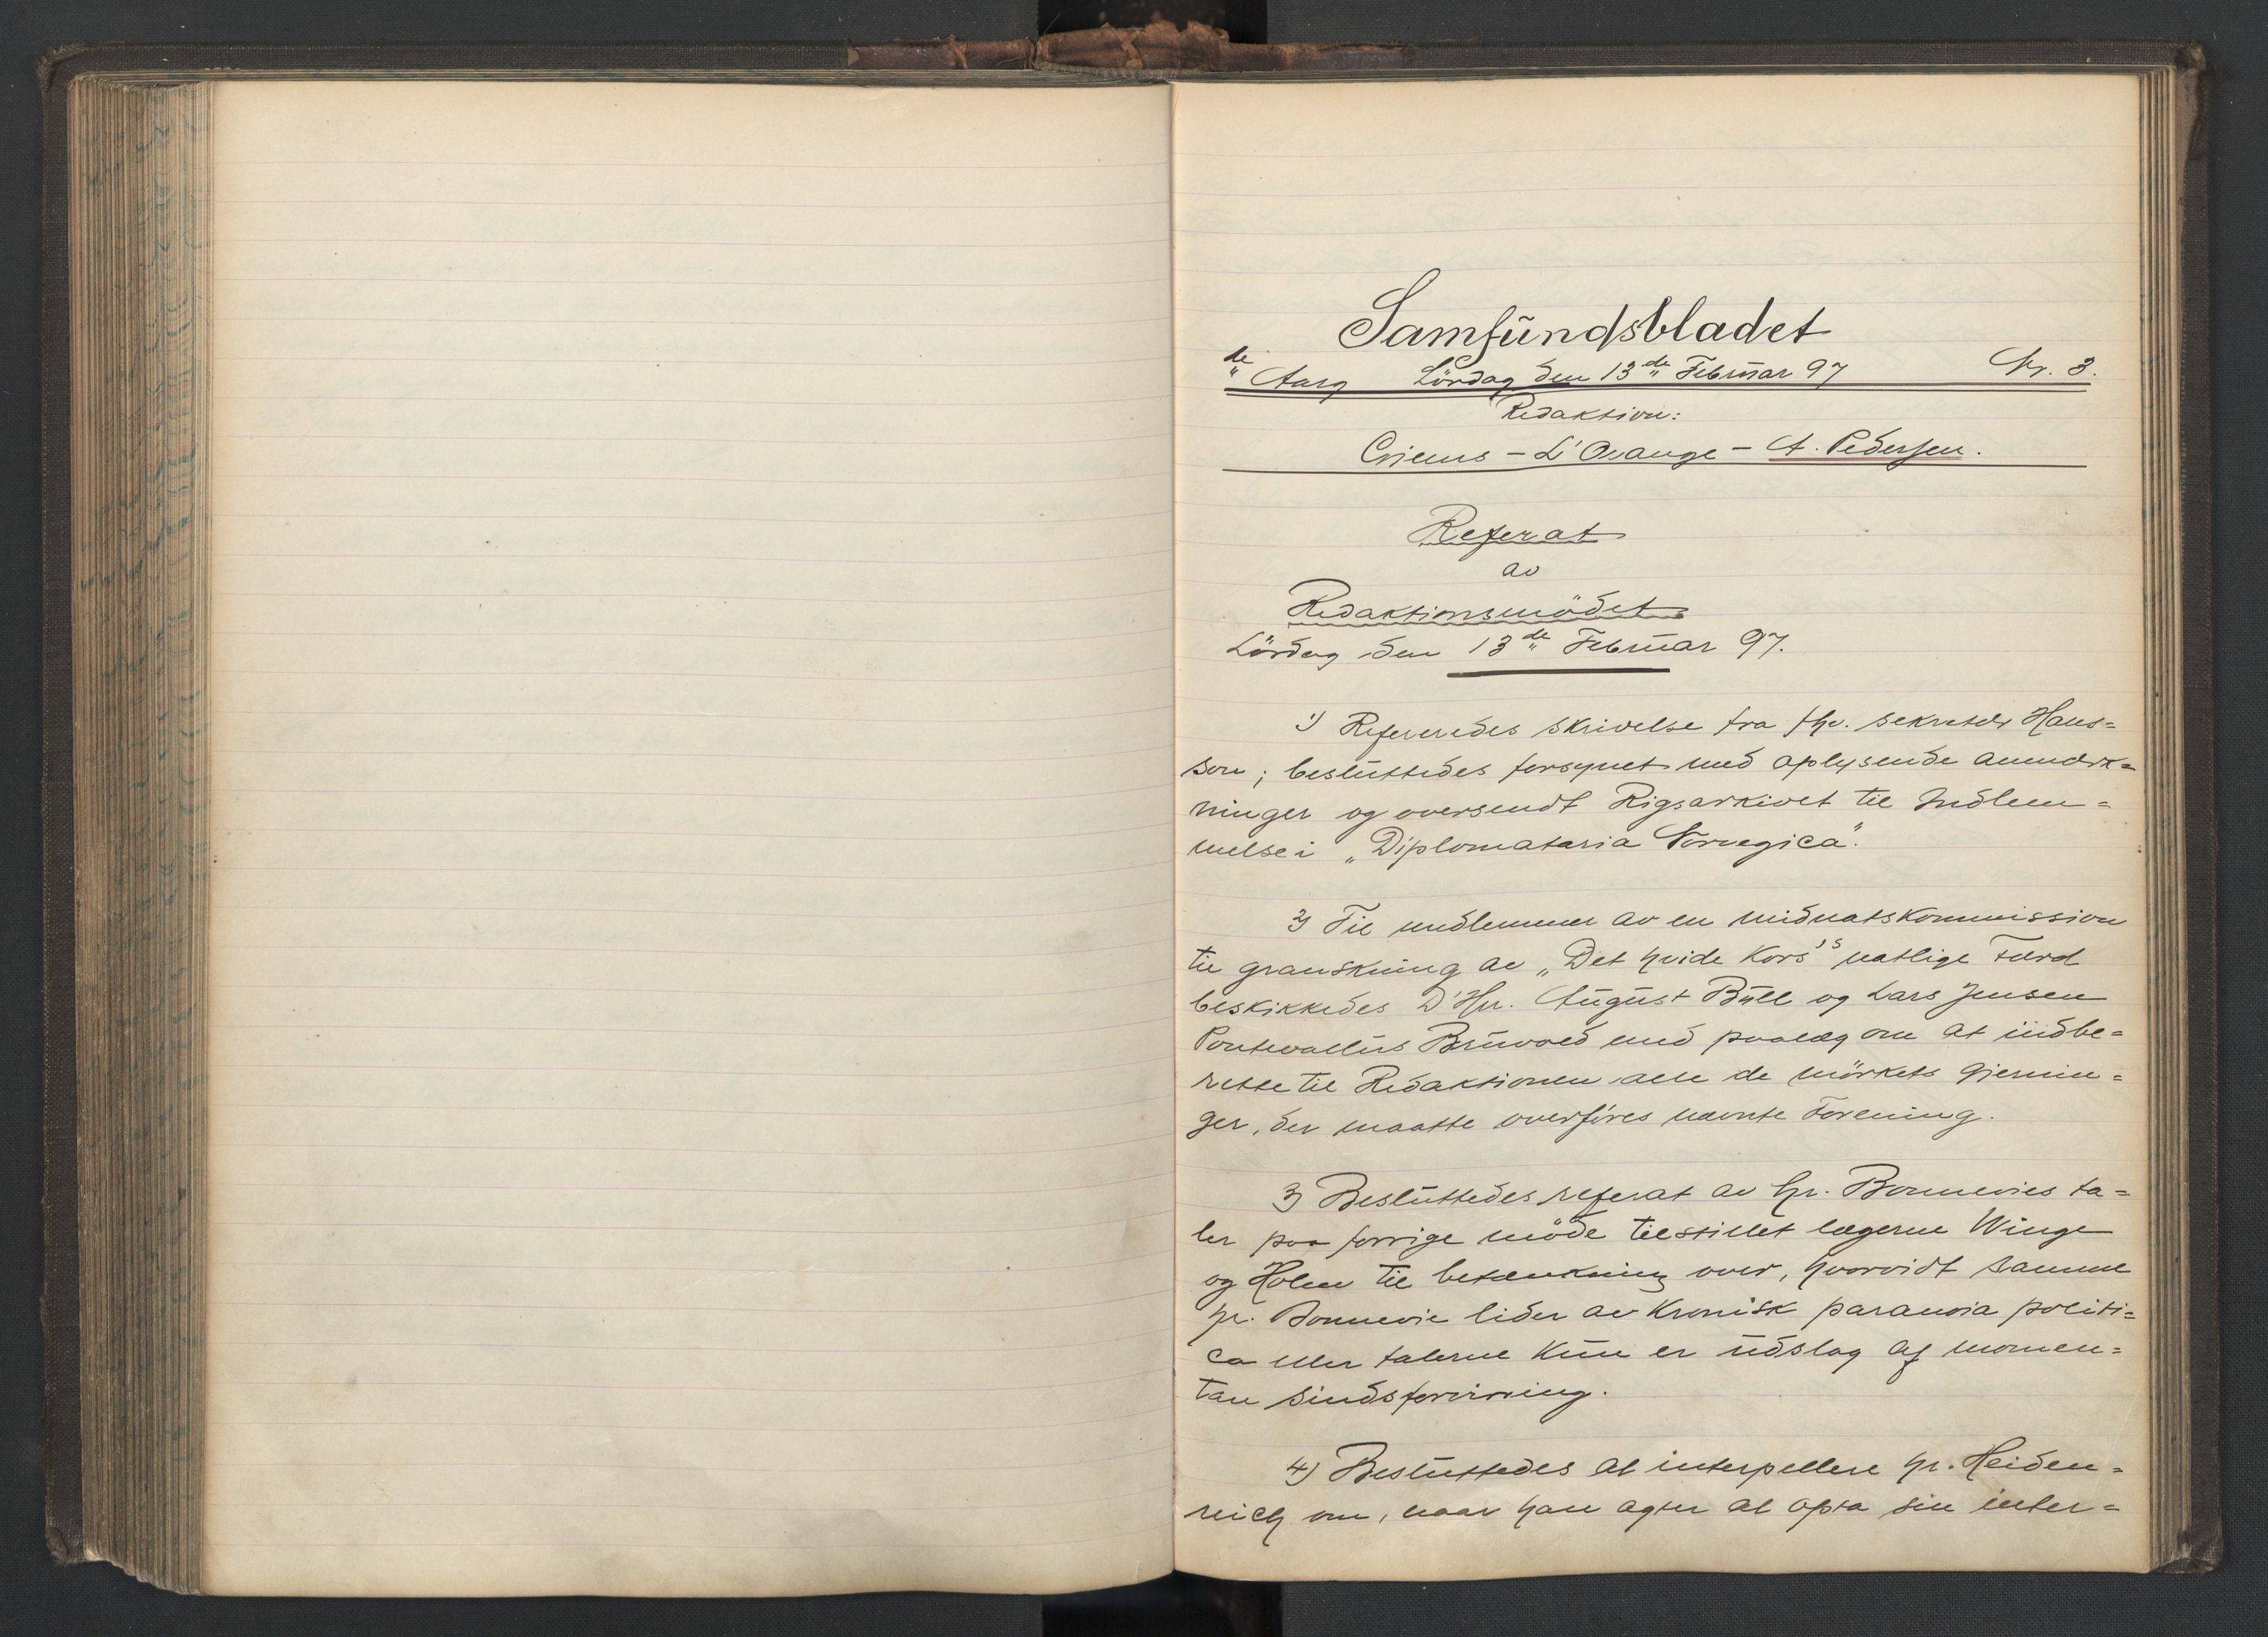 Samfundsbladet
de Aarg Lördag den 13de Februar 97 Nr. 3.
Redaktion:
L'Orange - A. Pedersen.
Referat
av
Redaktionsmödet
Lördag den 13de Februar 97.
1) Refereredes skrivelse fra fhv. sekretær Hans=
son; besluttedes forsynet med oplysende anmærk=
ninger og oversendt Rigsarkivet til Indlem=
melse i „Diplomataria Norvegica“.
2) Til medlemmer av en midnatskommission
til granskning av „Det hvide Kors“'s natlige Færd
beskikkedes D'Hrr. August Bull og Lars Jensen
Pontevallus Bruvold med paalæg om at indbe=
rette til Redaktionen alle de mörkets Gjernin=
ger, der maatte overføres nævnte Forening.
3) Besluttedes referat av hr. Bonnevies ta=
ler paa forrige möde tilstillet lægerne Winge
og Holm til betænkning over, hvorvidt samme
hr. Bonnevie lider av kronisk paranoia politi=
ca eller talerne kun er udslag af momen=
tan sindsforvirring.
4) Besluttedes at interpellere hr. Heiden=
reich om, naar han agter at opta sin inter=